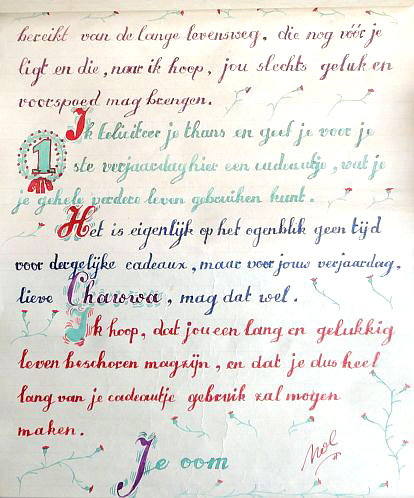 bereikt van de lange levensweg, die nog vóór je
ligt en die, naar ik hoop, jou slechts geluk en
voorspoed mag brengen.
Ik feliciteer je thans en geef je voor je
1 ste verjaardag hier een cadeautje, wat je
je gehele verdere leven gebruiken kunt.
Het is eigenlijk op het ogenblik geen tijd
voor dergelijke cadeaux, maar voor jouw verjaardag,
lieve Chawwa, mag dat wel.
Ik hoop, dat jou een lang en gelukkig
leven beschoren mag zijn, en dat je dus heel
lang van je cadeautje gebruik zal mogen
maken.
Je oom Nol